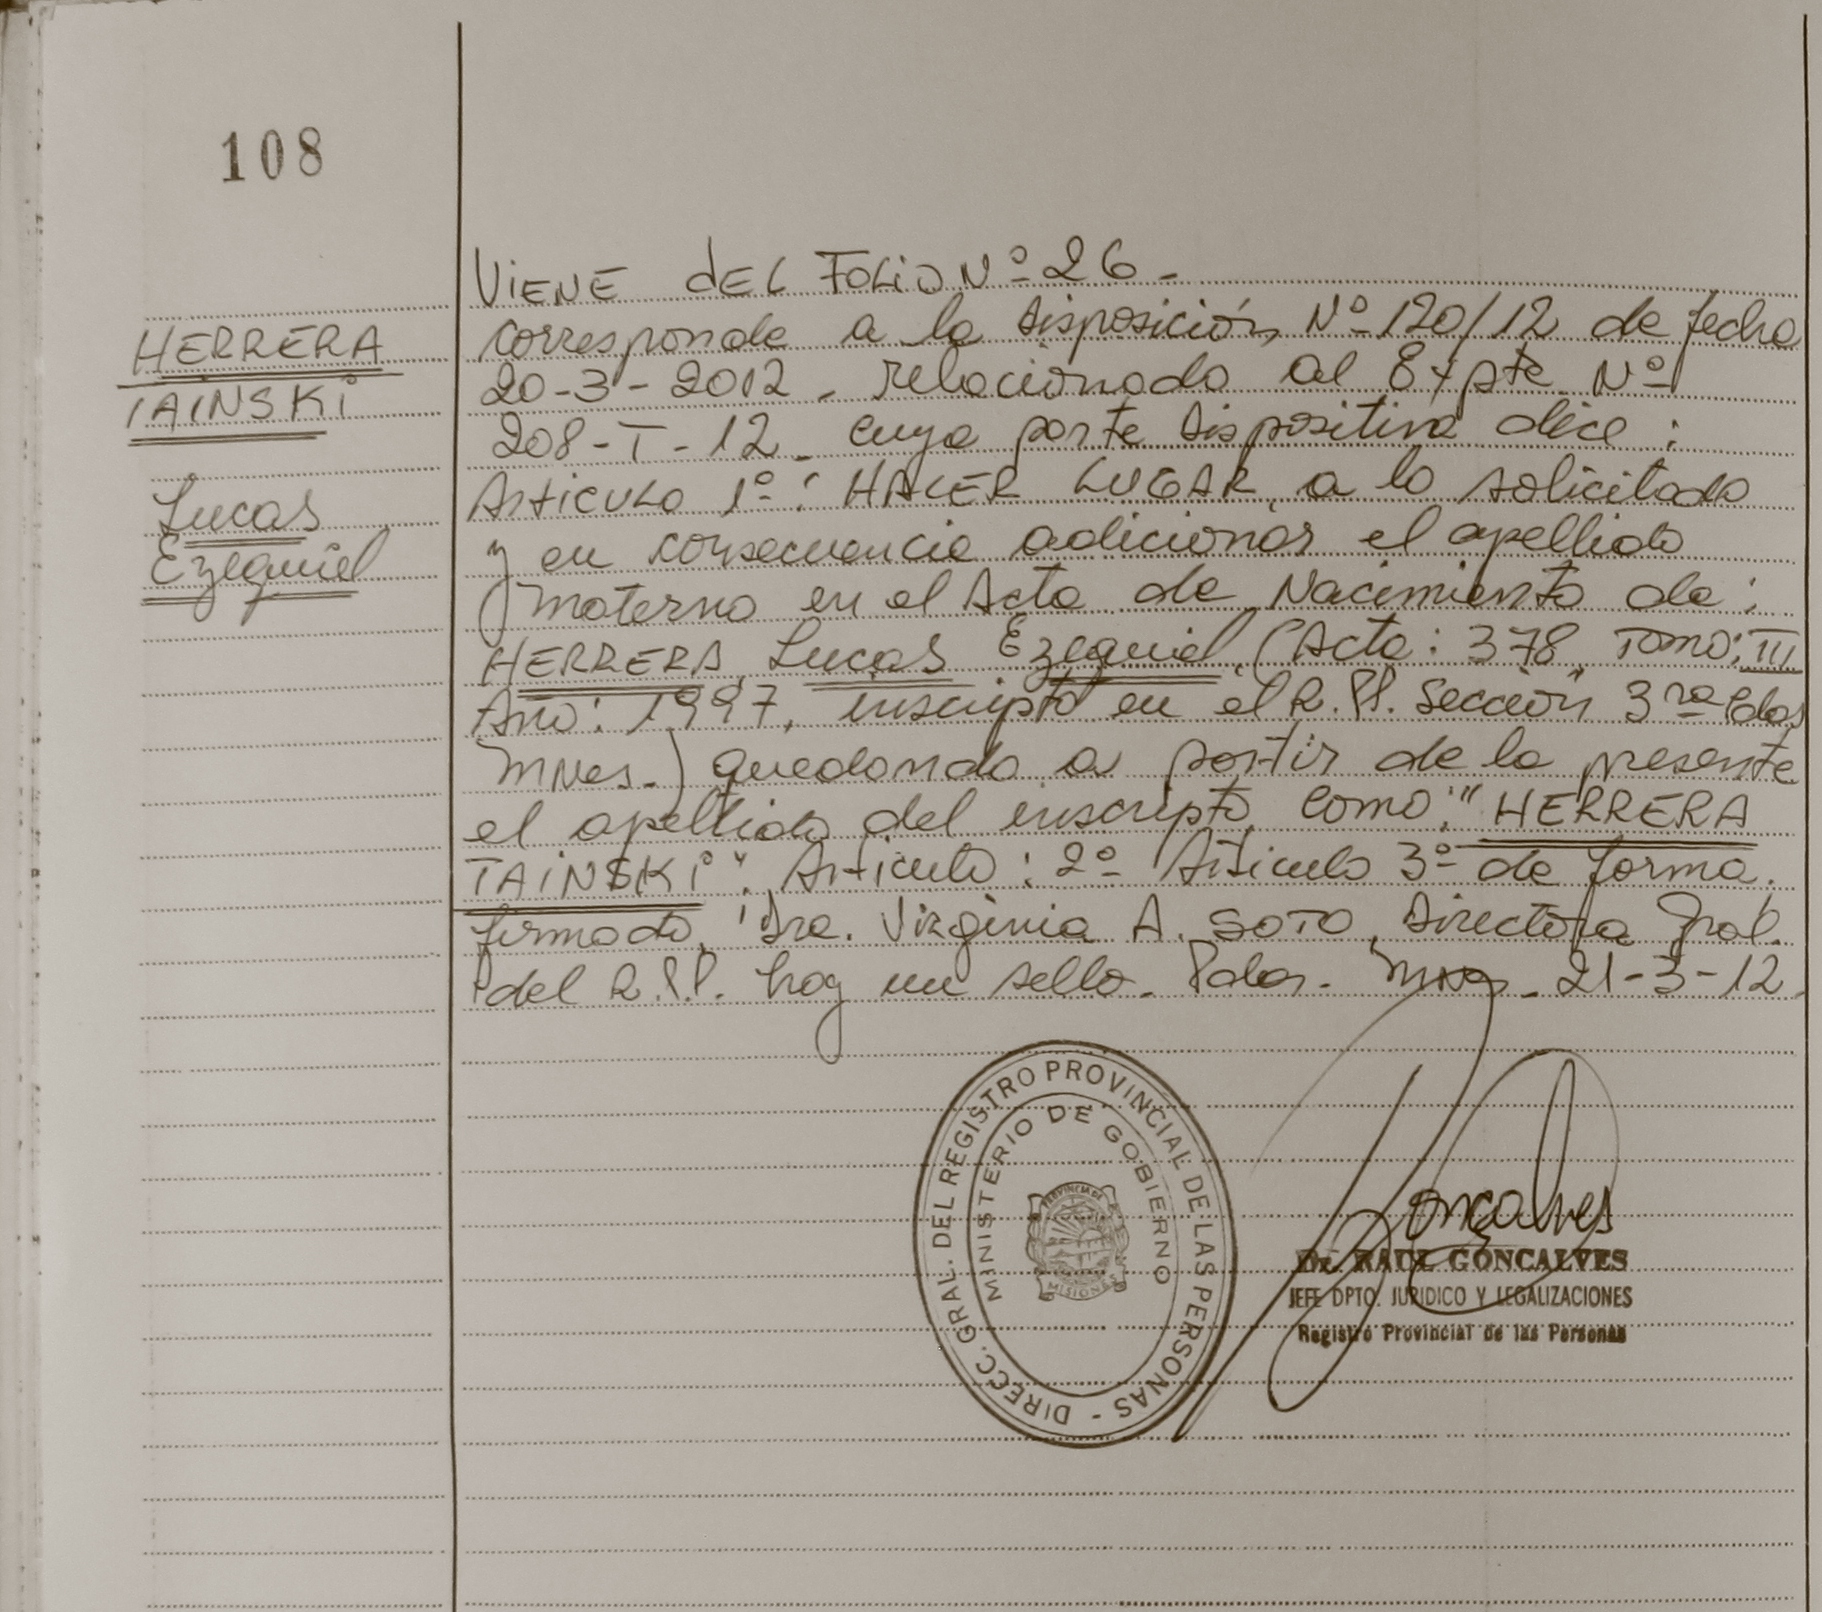 108
HERRERA
TAINSKI
Lucas
Ezequiel
VIENE DEL FOLIO Nº 26.-
corresponde a la disposición Nº 120/12 de fecha
20-3-2012. relacionado al Expte Nº
208-T-12. cuya parte dispositiva dice:
Articulo 1º: HACER LUGAR a lo solicitado
y en consecuencia adicionar el apellido
materno en el Acta de Nacimiento de:
HERRERA, Lucas Ezequiel, (Acta: 378, Tomo: III
Año: 1997, inscripto en el R.P.P. Sección 3ra Pdas
Mnes.) quedando a partir de la presente
el apellido del inscripto como: "HERRERA
TAINSKI". Articulo: 2º Articulo 3º de forma.
firmado, Dra. Virginia A. SOTO, Directora Gral.
del R.P.P. hay un sello. Pdas. Mnes. 21-3-12.
DIRECC. GRAL. DEL REGISTRO PROVINCIAL DE LAS PERSONAS -
MINISTERIO DE GOBIERNO
PROVINCIA DE
MISIONES
Goncalves
RAUL GONCALVES
JEFE DPTO. JURIDICO Y LEGALIZACIONES
Registro Provincial de las Personas